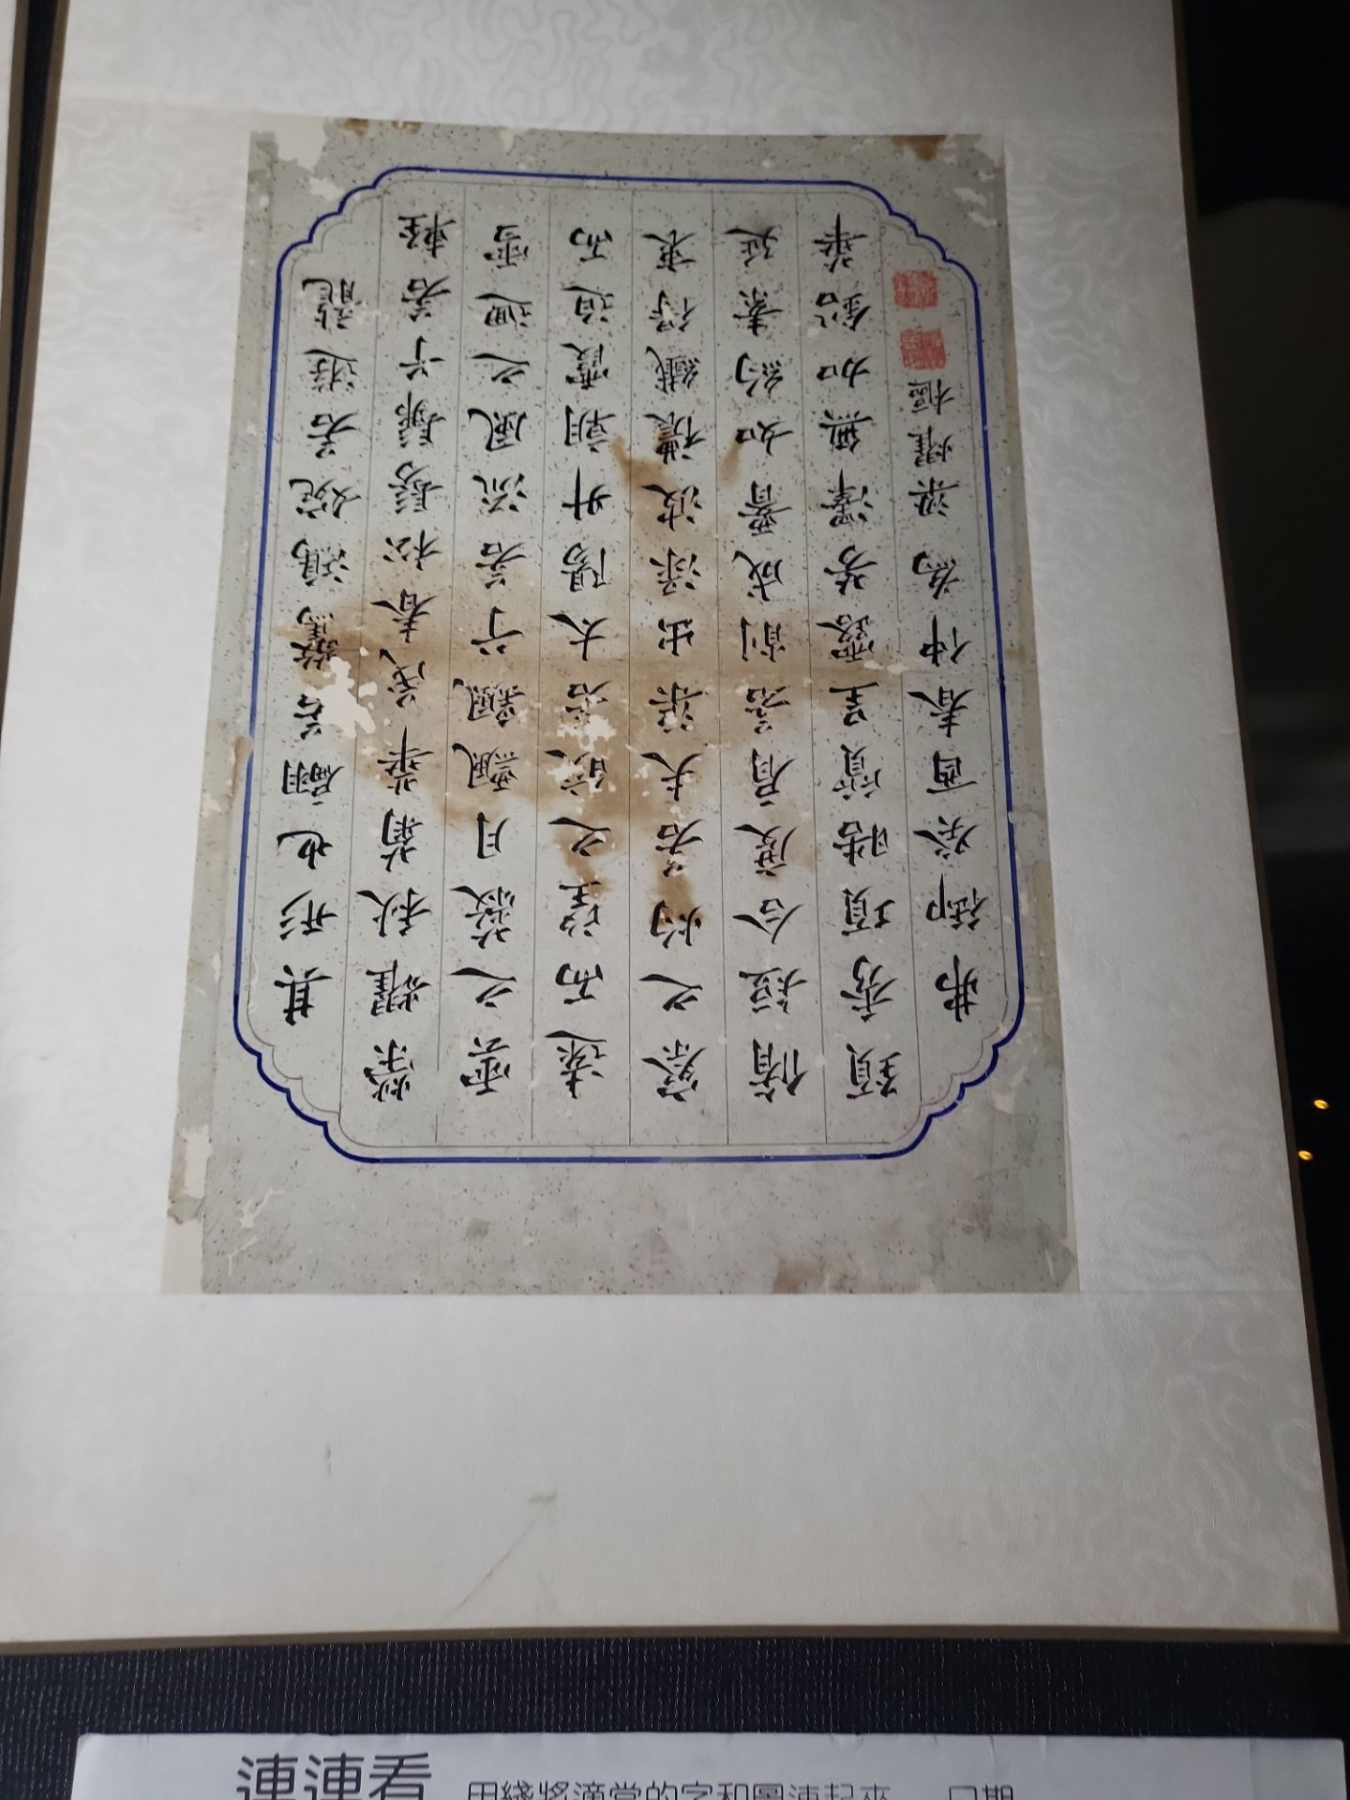 其形也翩若驚鴻婉若遊龍
榮耀秋菊華茂春松髣髴兮若輕
雲之蔽月飄颻兮若流風之迴雪
遠而望之皎若太陽升朝霞迫而
察之灼若夫渠出淥波穠纖得衷
脩短合度肩若削成腰如約素延
頸秀項皓質呈露芳澤無加鉛華
弗御癸酉春仲為梁耀樞
連連看 用綫將適當的字和圖連起來 日期